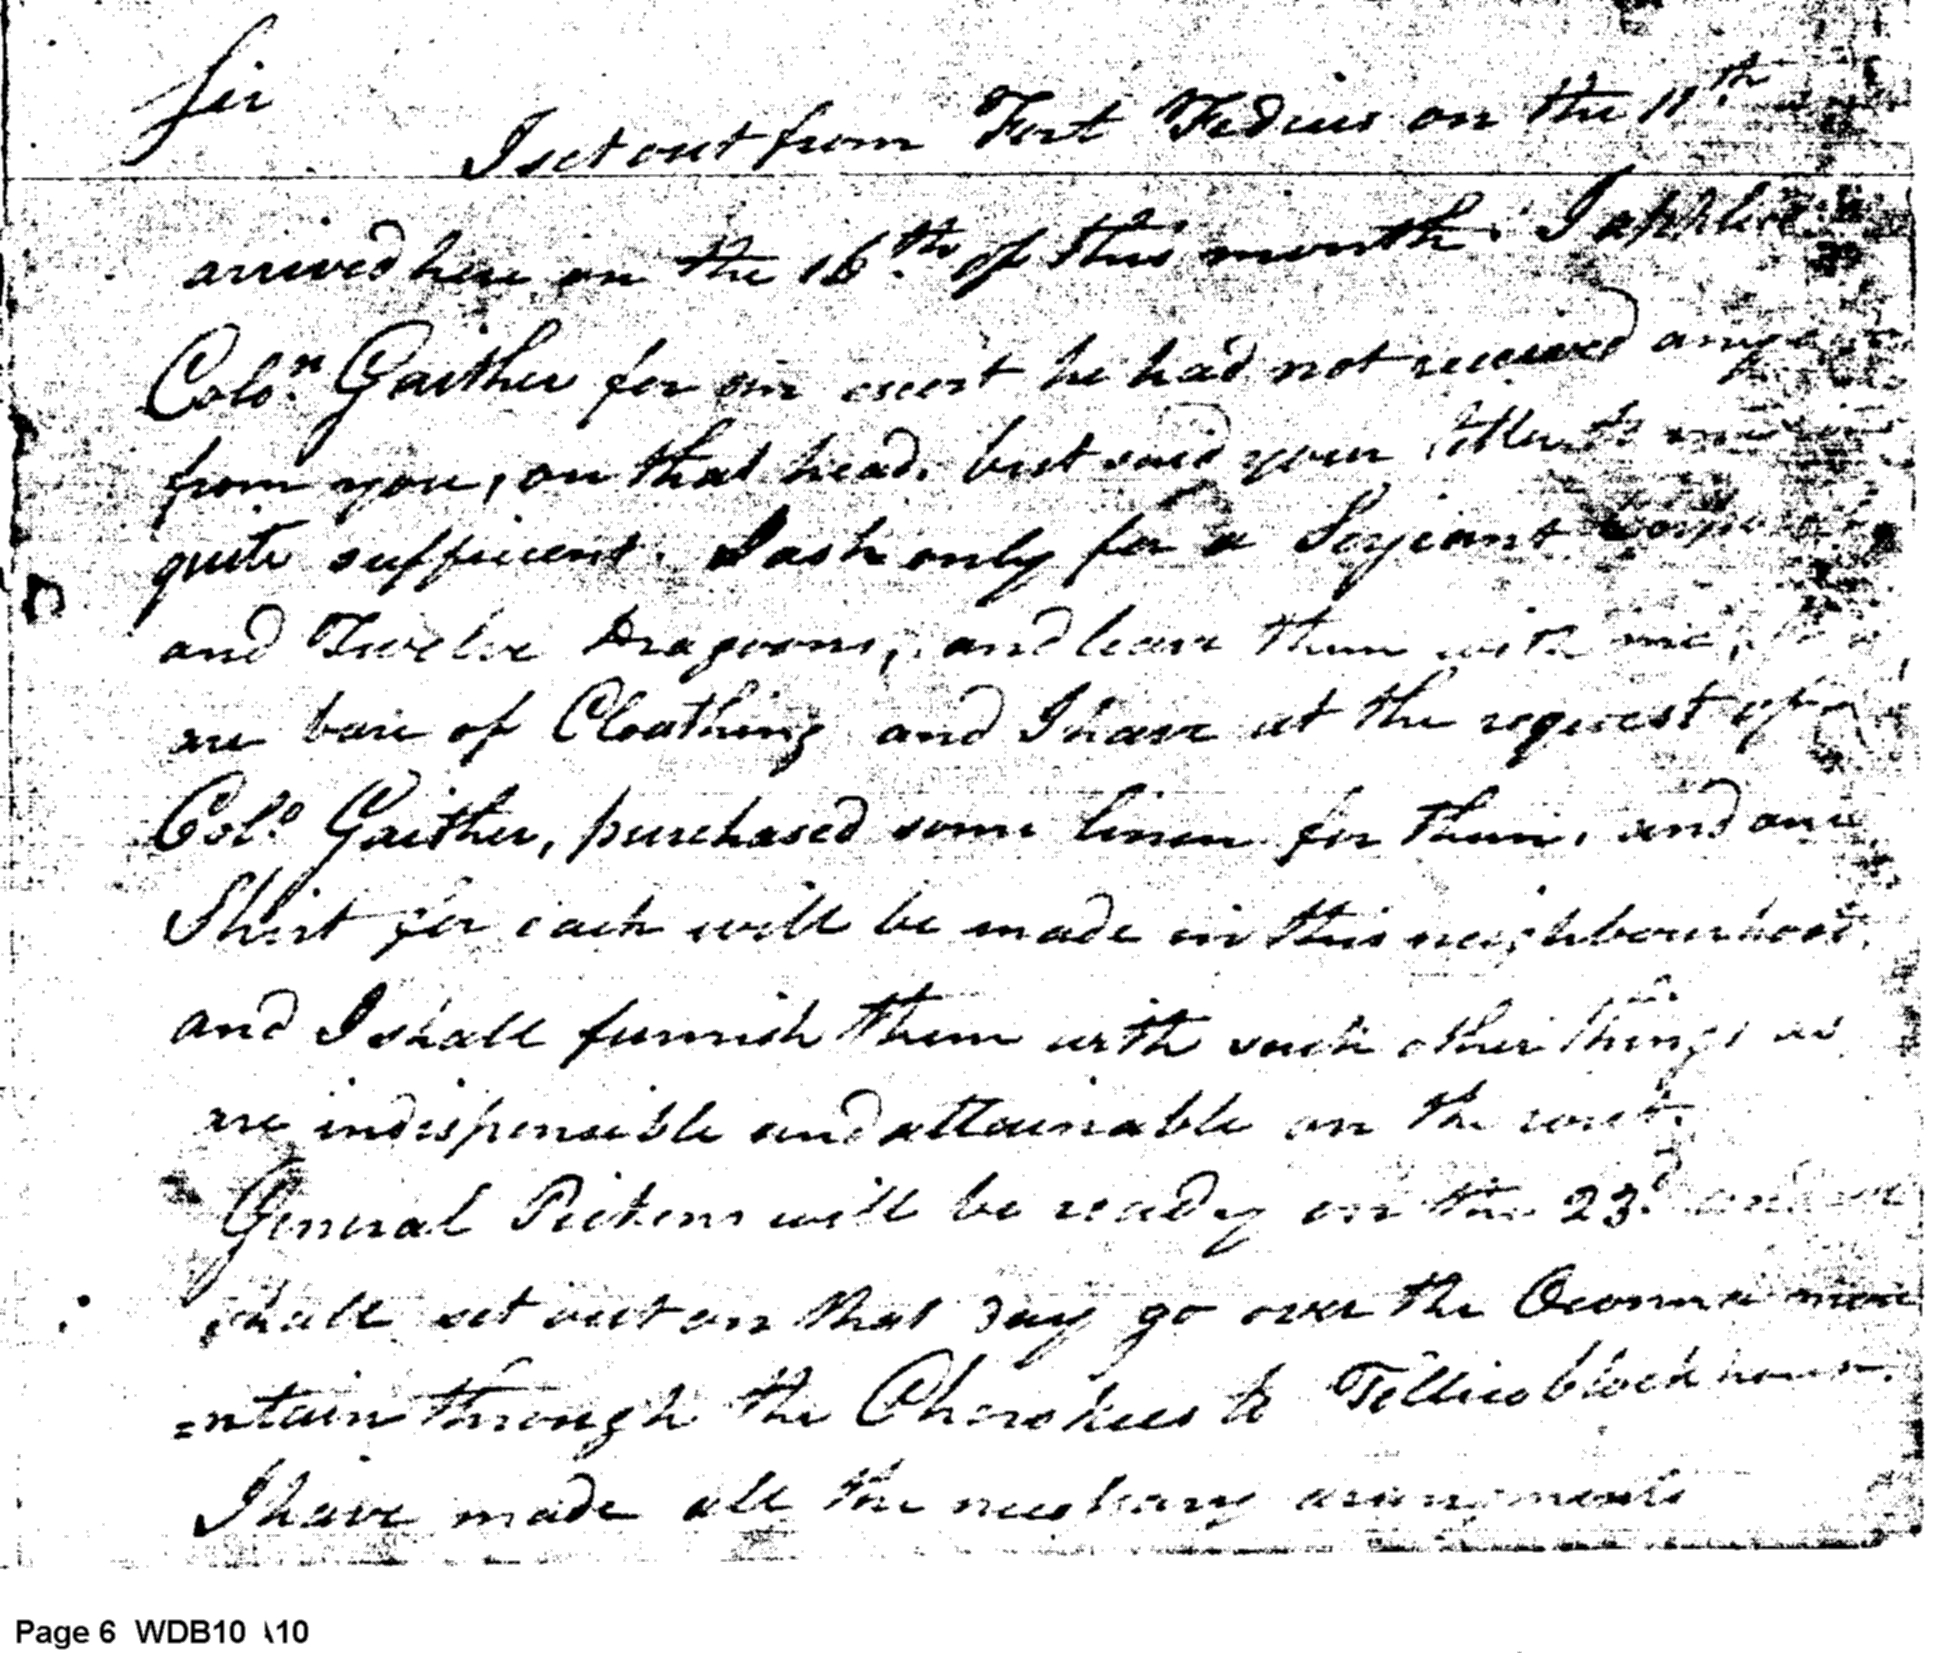 Sir
I set out from Fort Fidius on the 11th
arrived here on the 16th of this month. I applied
Colon Gaither for an escort he had not received any
from you, on that head, but said your letter to
quite sufficient. I ask only for a Serjeant
and Twelve Dragoons, and leave them with me,
are bare of Cloathing and I have at the request of
Colo Gaither, purchased some linen for them, and one
Shirt for each will be made in this neighbourhood,
and I shall furnish them with such other things as
are indispensible and attainable on the rout.
General Pickens will be ready on the 23d and we
shall set out on that day go over the Oconna moun
=ntain through the Cherokees to Tellico blockhouse.
I have made all the necessary arangments
Page 6 WDB10 \10